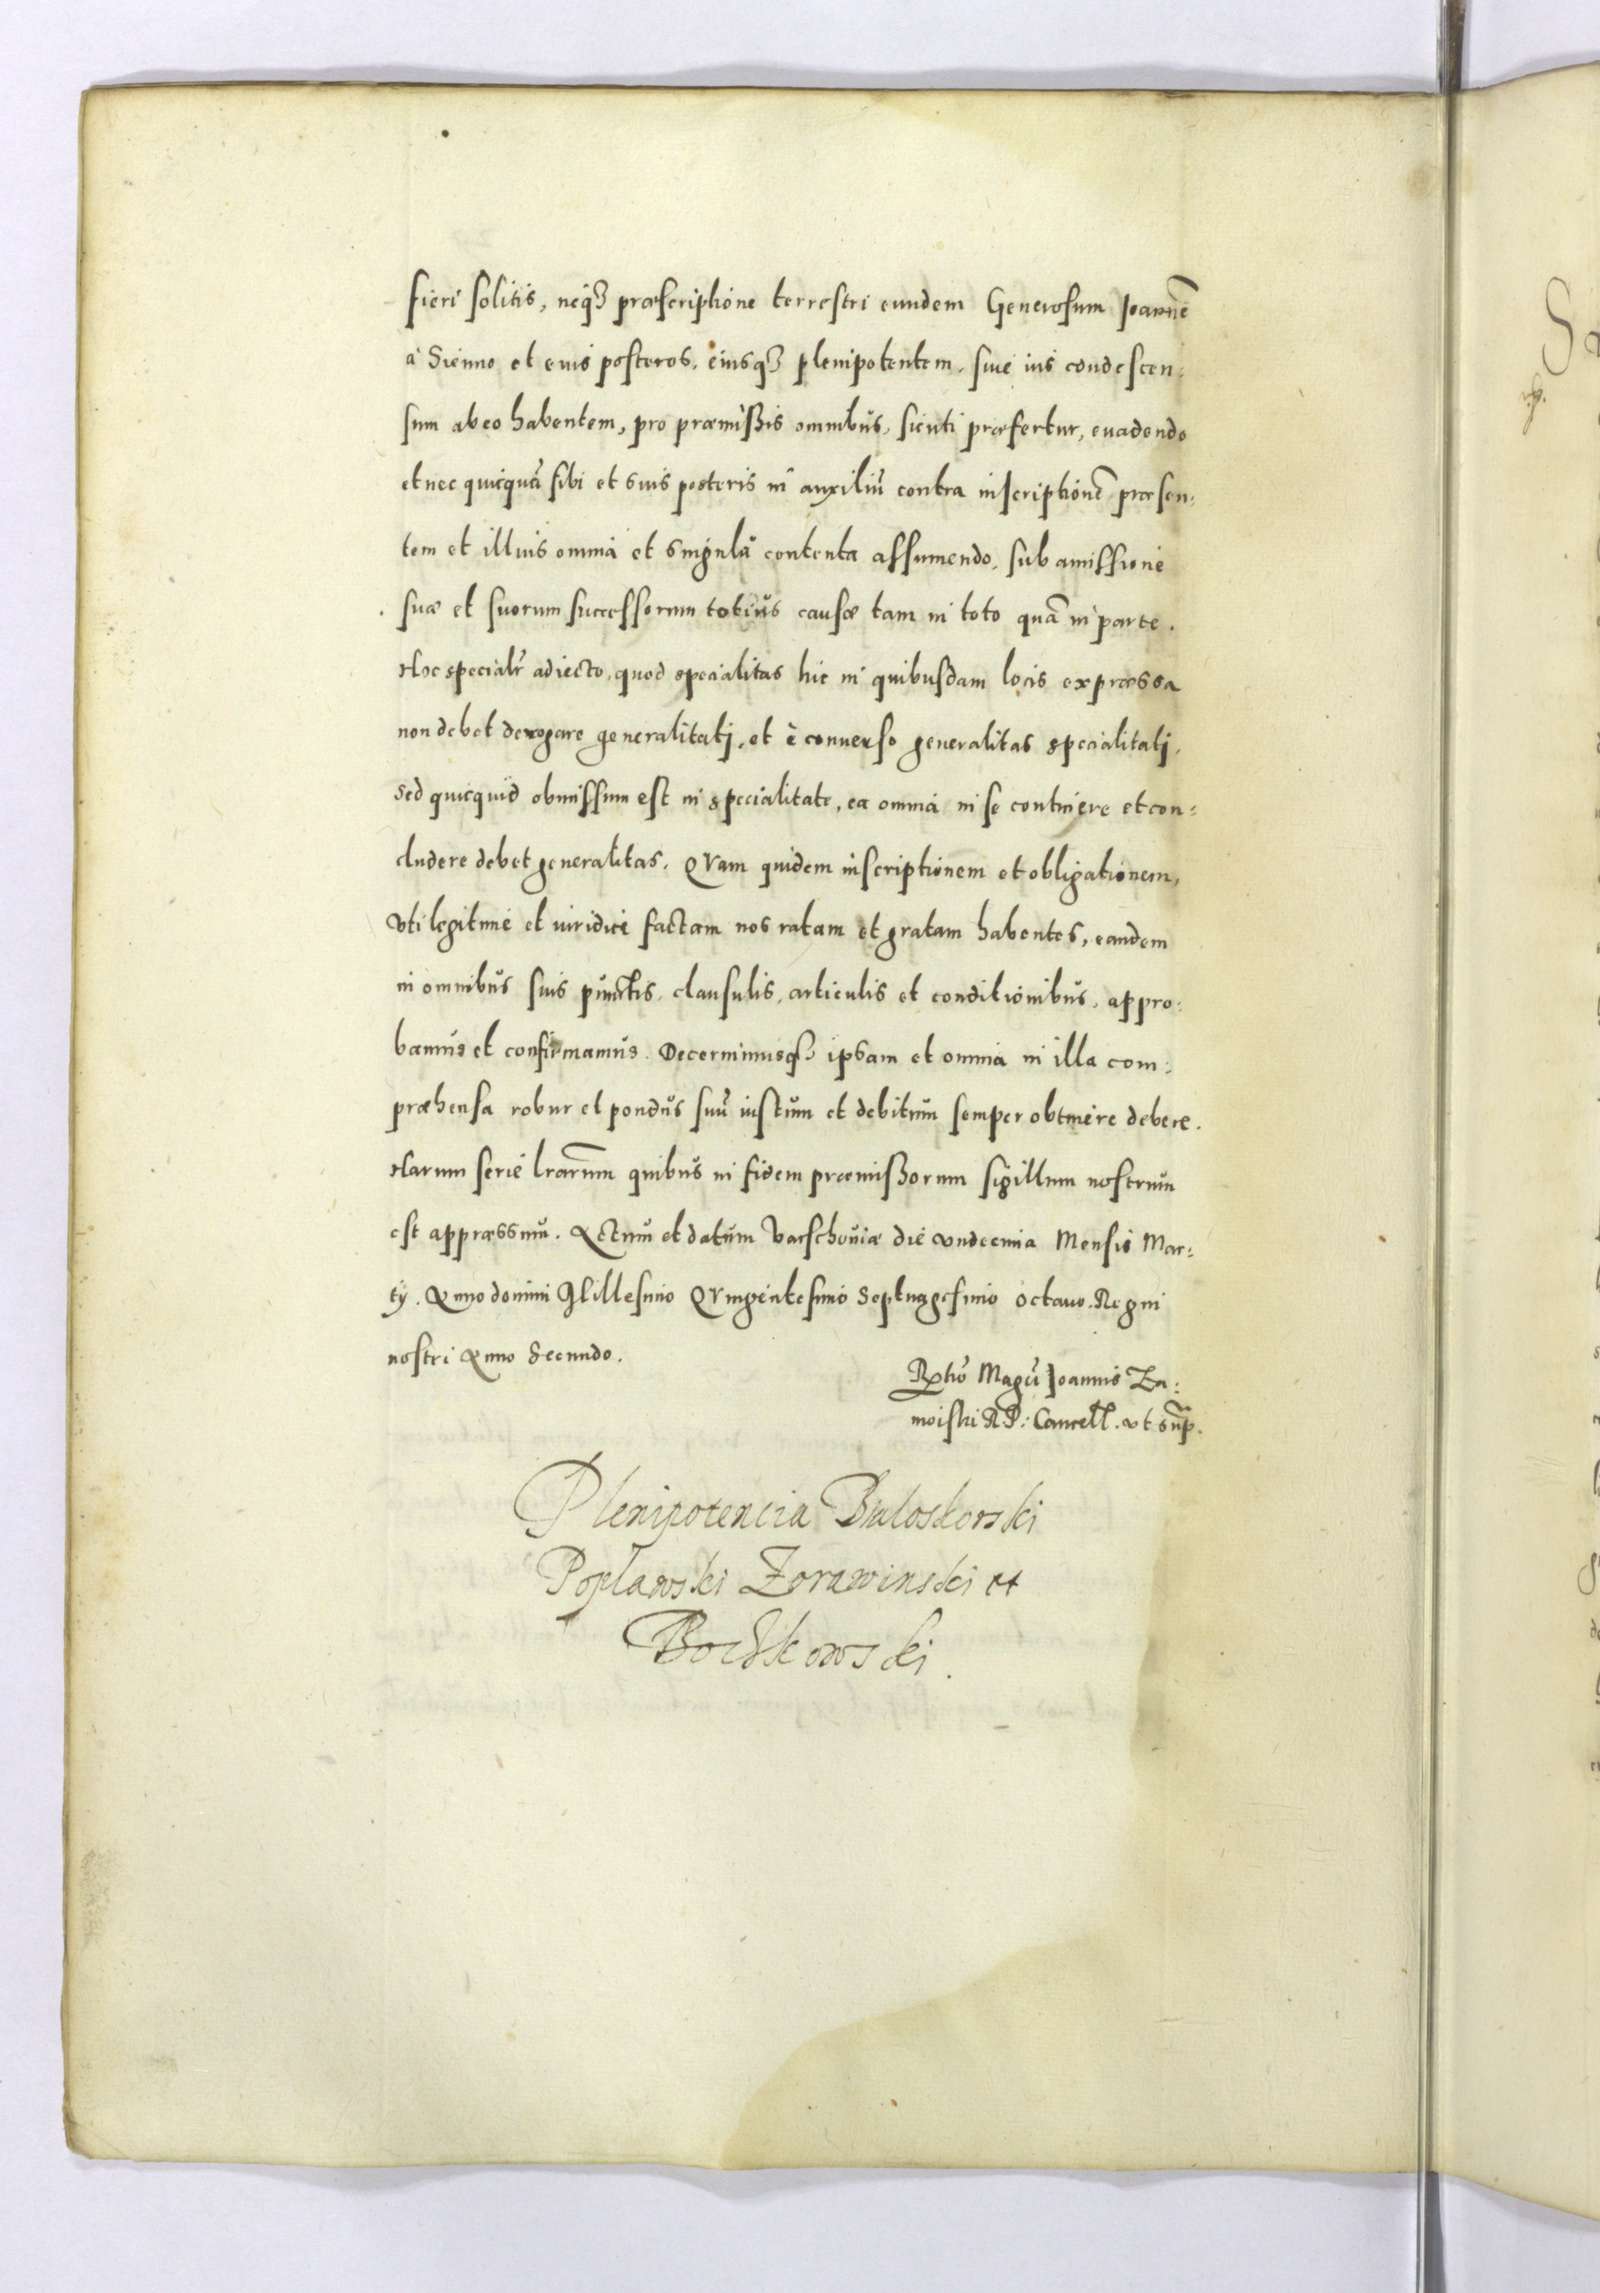 fieri solitis, neqз præscriptione terrestri eundem Generosum Joannē
à Sienno et eius posteros, eiusqз plenipotentem, siue ius condescen:
sum ab eo habentem, pro præmißis omnibus, sicuti præfertur, euadendo
et nec quicquā sibi et suis posteris in auxiliū contra inscriptionē præsen:
tem et illius omnia et singula contenta assumendo, sub amissione
suæ et suorum successorum totius causæ tam in toto quā in parte.
Hoc specialr adiecto, quod specialitas hic in quibusdam locis expræssa
non debet derogare generalitatj, et è conuerso generalitas specialitatj,
sed quicquid obmissum est in specialitate, ea omnia in se continere et con:
cludere debet generalitas. QVam quidem inscriptionem et obligationem,
vti legitime et iuridice factam nos ratam et gratam habentes, eandem
in omnibus suis punctis, clausulis, articulis et conditionibus, appro:
bamus et confirmamus. Decernimusqз ipsam et omnia in illa com:
præhensa robur et pondus suū iustum et debitum semper obtinere debere.
Harum serie lrarum quibus in fidem præmißorum sigillum nostrum
est appræssum. Actum et datum Varschouiæ die vndecima Mensis Mar:
tij. Anno domini Millesimo QVingentesimo Septuagesimo octauo. Regni
nostri Anno Secundo.
Magci Joannis Za:
moiski R P: Cancell. vt sup.
Plenipotencia
Poplawski Zorawinski et